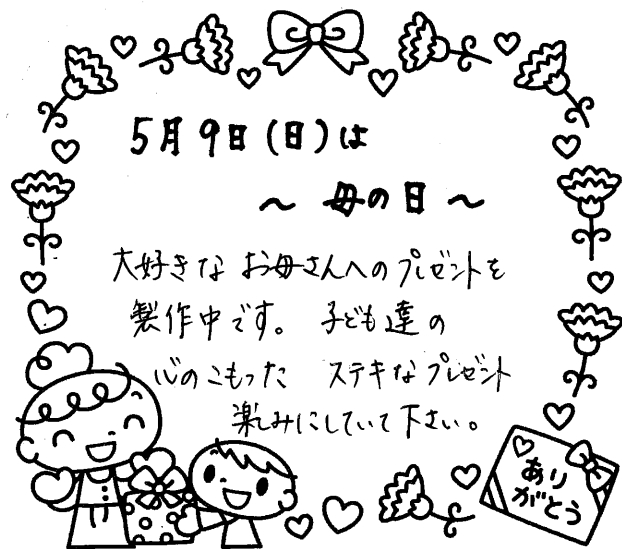 5月9日(日)は
～ 母の日 ～
大好きな お母さんへのプレゼントを
製作中です。 子ども達の
心のこもった ステキなプレゼント
楽しみにしていて下さい。
あり
がとう